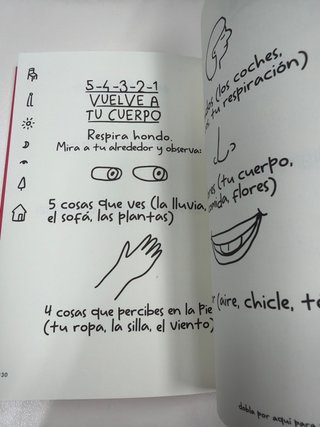 5-4-3-2-1
VUELVE A
TU CUERPO
Respira hondo.
Mira a tu alrededor y observa:
5 cosas que ves (la lluvia,
el sofá, las plantas)
4 cosas que percibes en la pie
(tu ropa, la silla, el viento)
30
(los coches,
tu respiración)
(tu cuerpo,
flores)
(aire, chicle,
dobla por aquí para